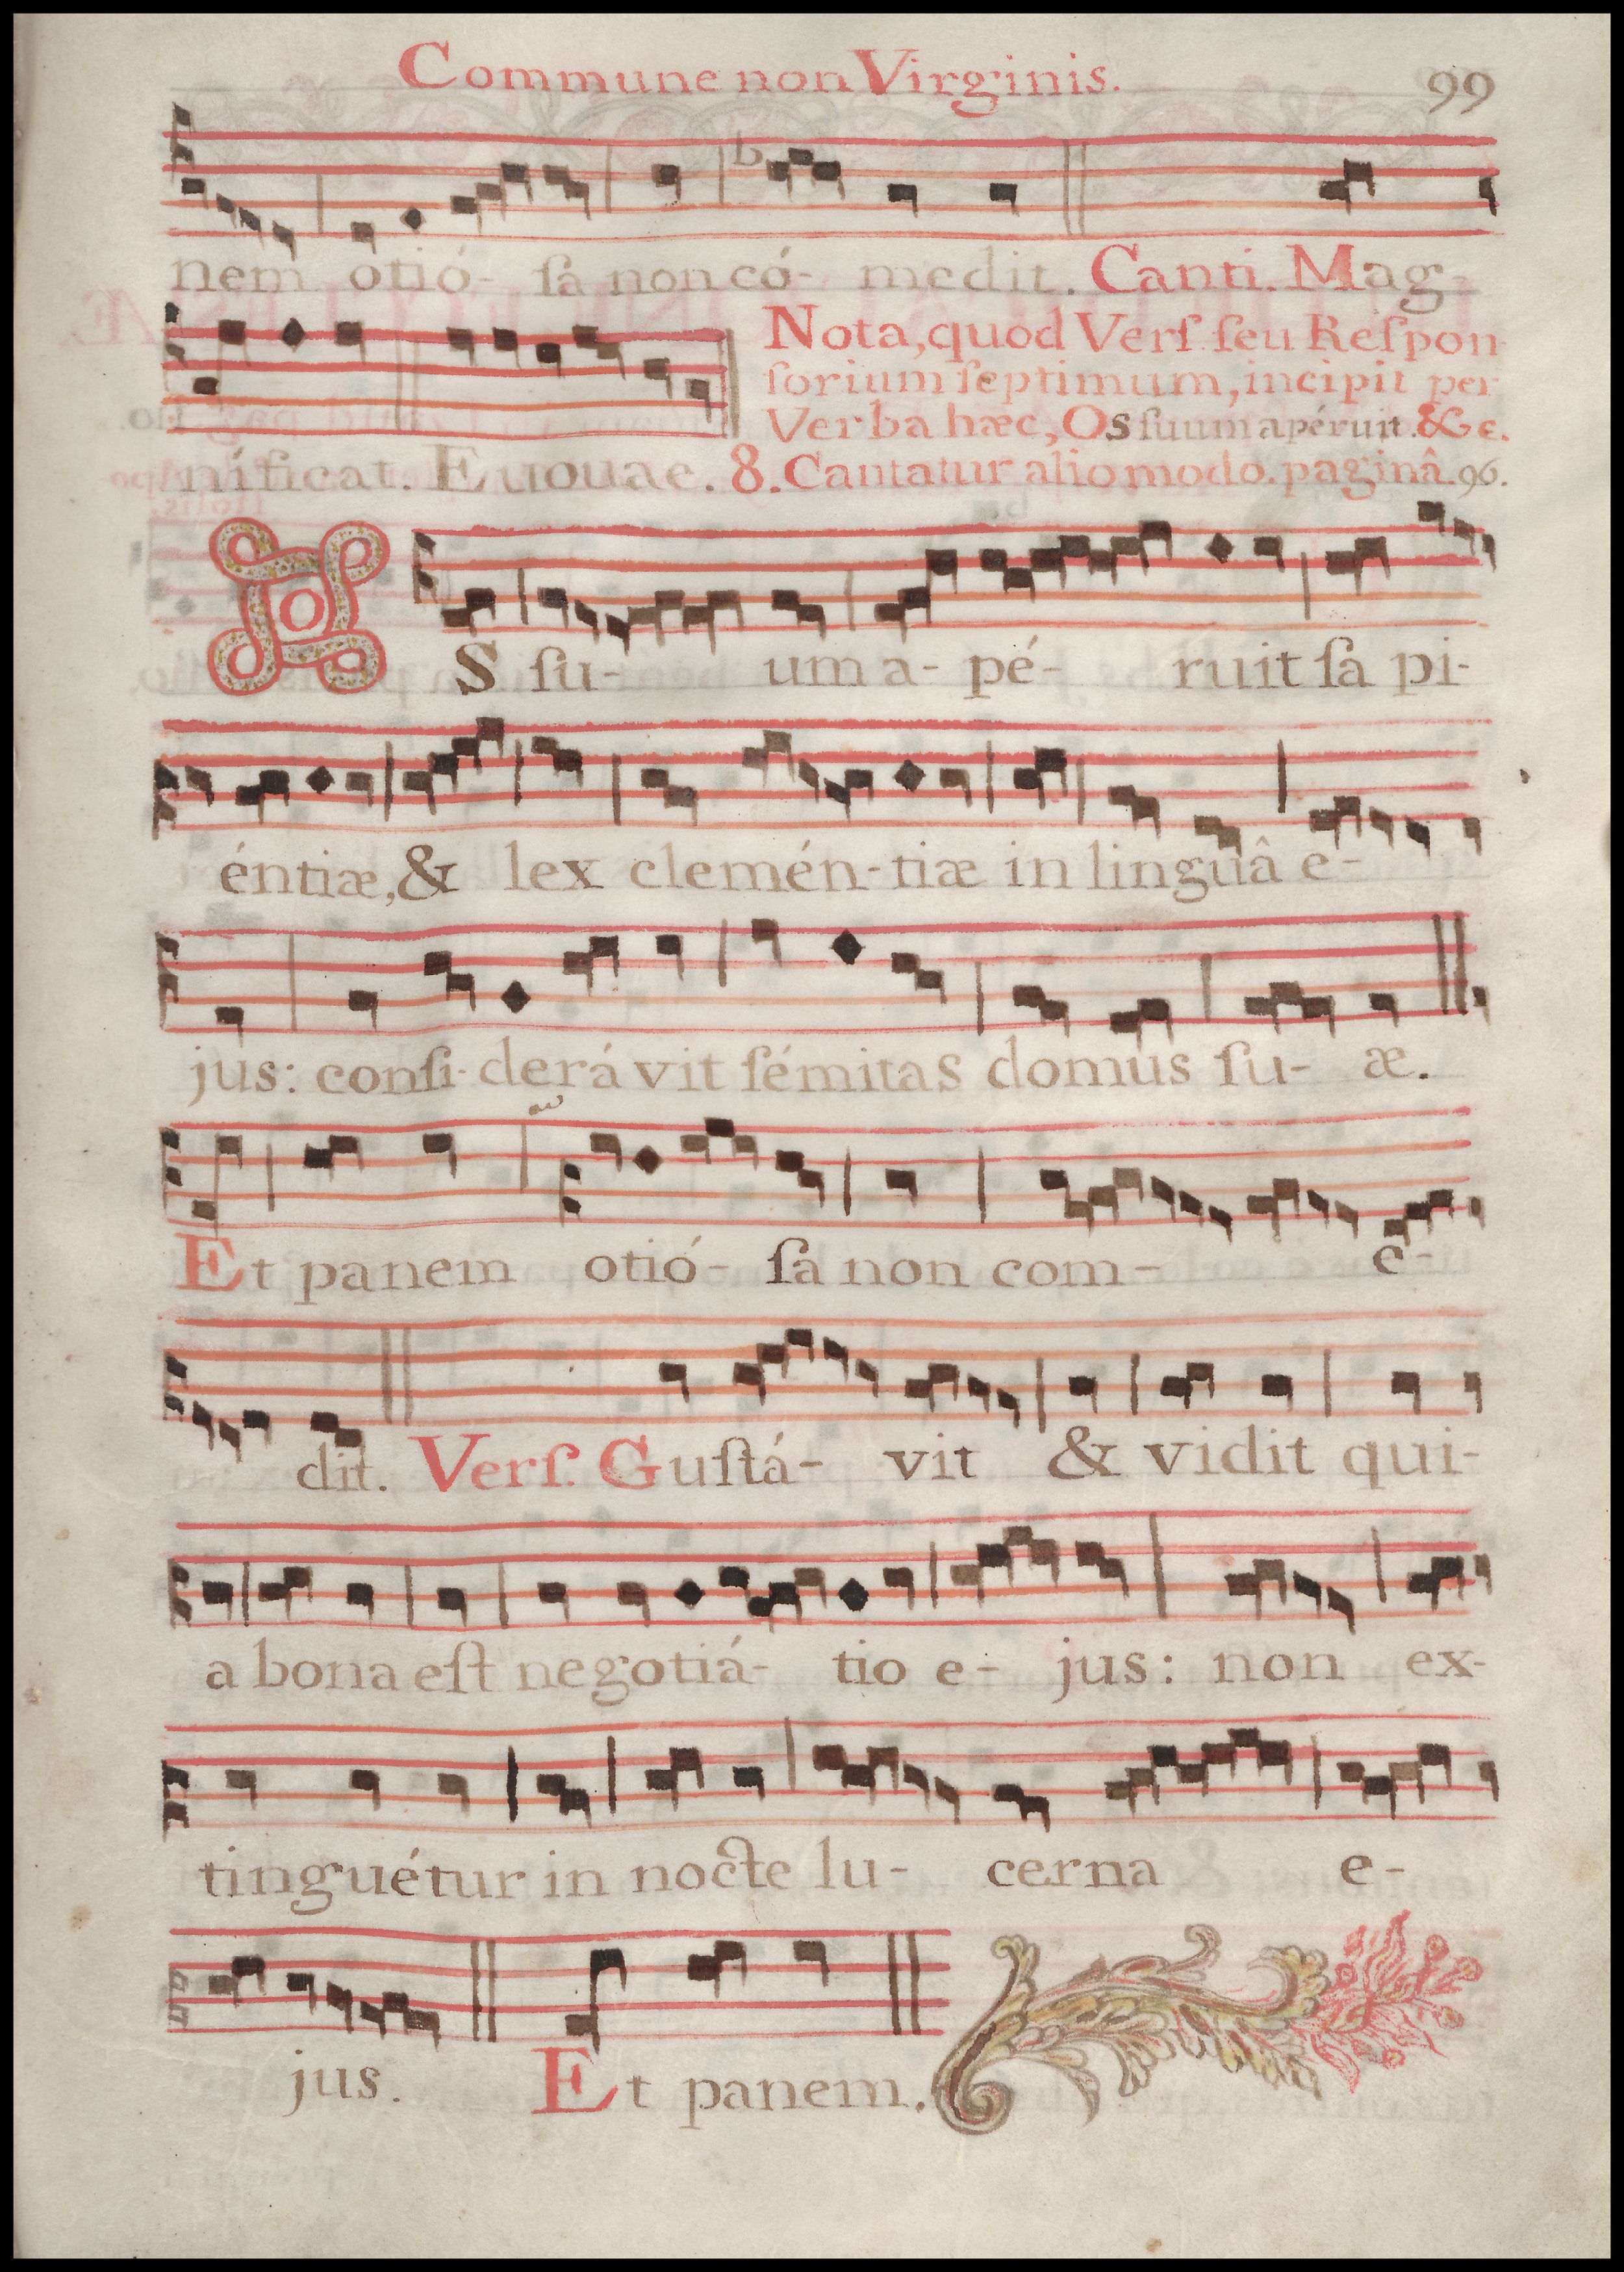 Commune non Virginis. 99
nem otió- ſa non có- medit. Canti. Mag-
Nota, quod Verſ. ſeu Reſpon
ſorium ſeptimum, incipit per
Verba hæc, Os ſuum apéruit. &c.
níficat. Euouae. 8. Cantatur alio modo. paginâ. 96.
OS ſu- um a- pé- ruit ſa pi-
éntiæ, & lex clemén- tiæ in linguâ e-
jus: conſi- derá vit ſémitas domus ſu- æ.
Et panem otió- ſa non com- e-
dit. Verſ. Guſtá- vit & vidit qui-
a bona eſt negotiá- tio e- jus: non ex-
tinguétur in nocte lu- cerna e-
jus. Et panem.